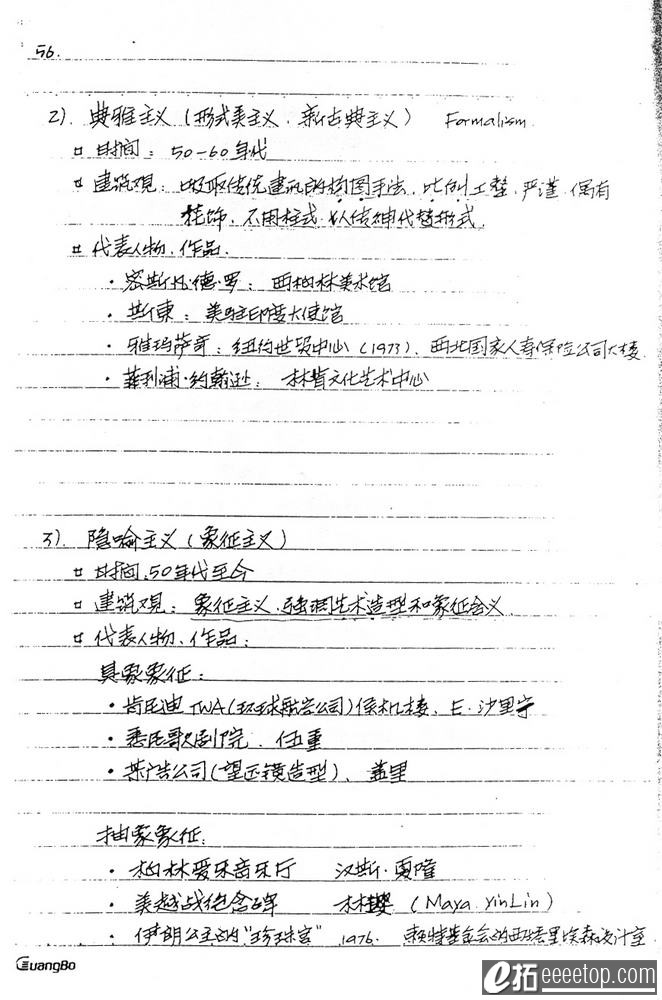 56.
2). 典雅主义 (形式美主义、新古典主义) Formalism
时间: 50-60年代
建筑观: 吸取传统建筑的构图手法, 比例工整、严谨, 偶有
花饰, 不用柱式, 以传神代替形式.
代表人物、作品.
· 密斯·凡·德·罗: 西柏林美术馆
· 斯东: 美驻印度大使馆
· 雅玛萨奇: 纽约世贸中心 (1973)、西北国家人寿保险公司大楼
· 菲利浦·约翰逊: 林肯文化艺术中心
3). 隐喻主义 (象征主义)
时间: 50年代至今
建筑观: 象征主义, 强调艺术造型和象征含义
代表人物、作品:
具象象征:
· 肯尼迪TWA(环球航空公司)候机楼、E·沙里宁
· 悉尼歌剧院、伍重
· 某广告公司(望远镜造型)、盖里
抽象象征:
· 柏林爱乐音乐厅 汉斯·夏隆
· 美越战纪念碑 林璎 (Maya YinLin)
· 伊朗公主的"珍珠宫" 1976. 赖特基金会的西塔里埃森设计室
GuangBo
e拓 eeeetop.com